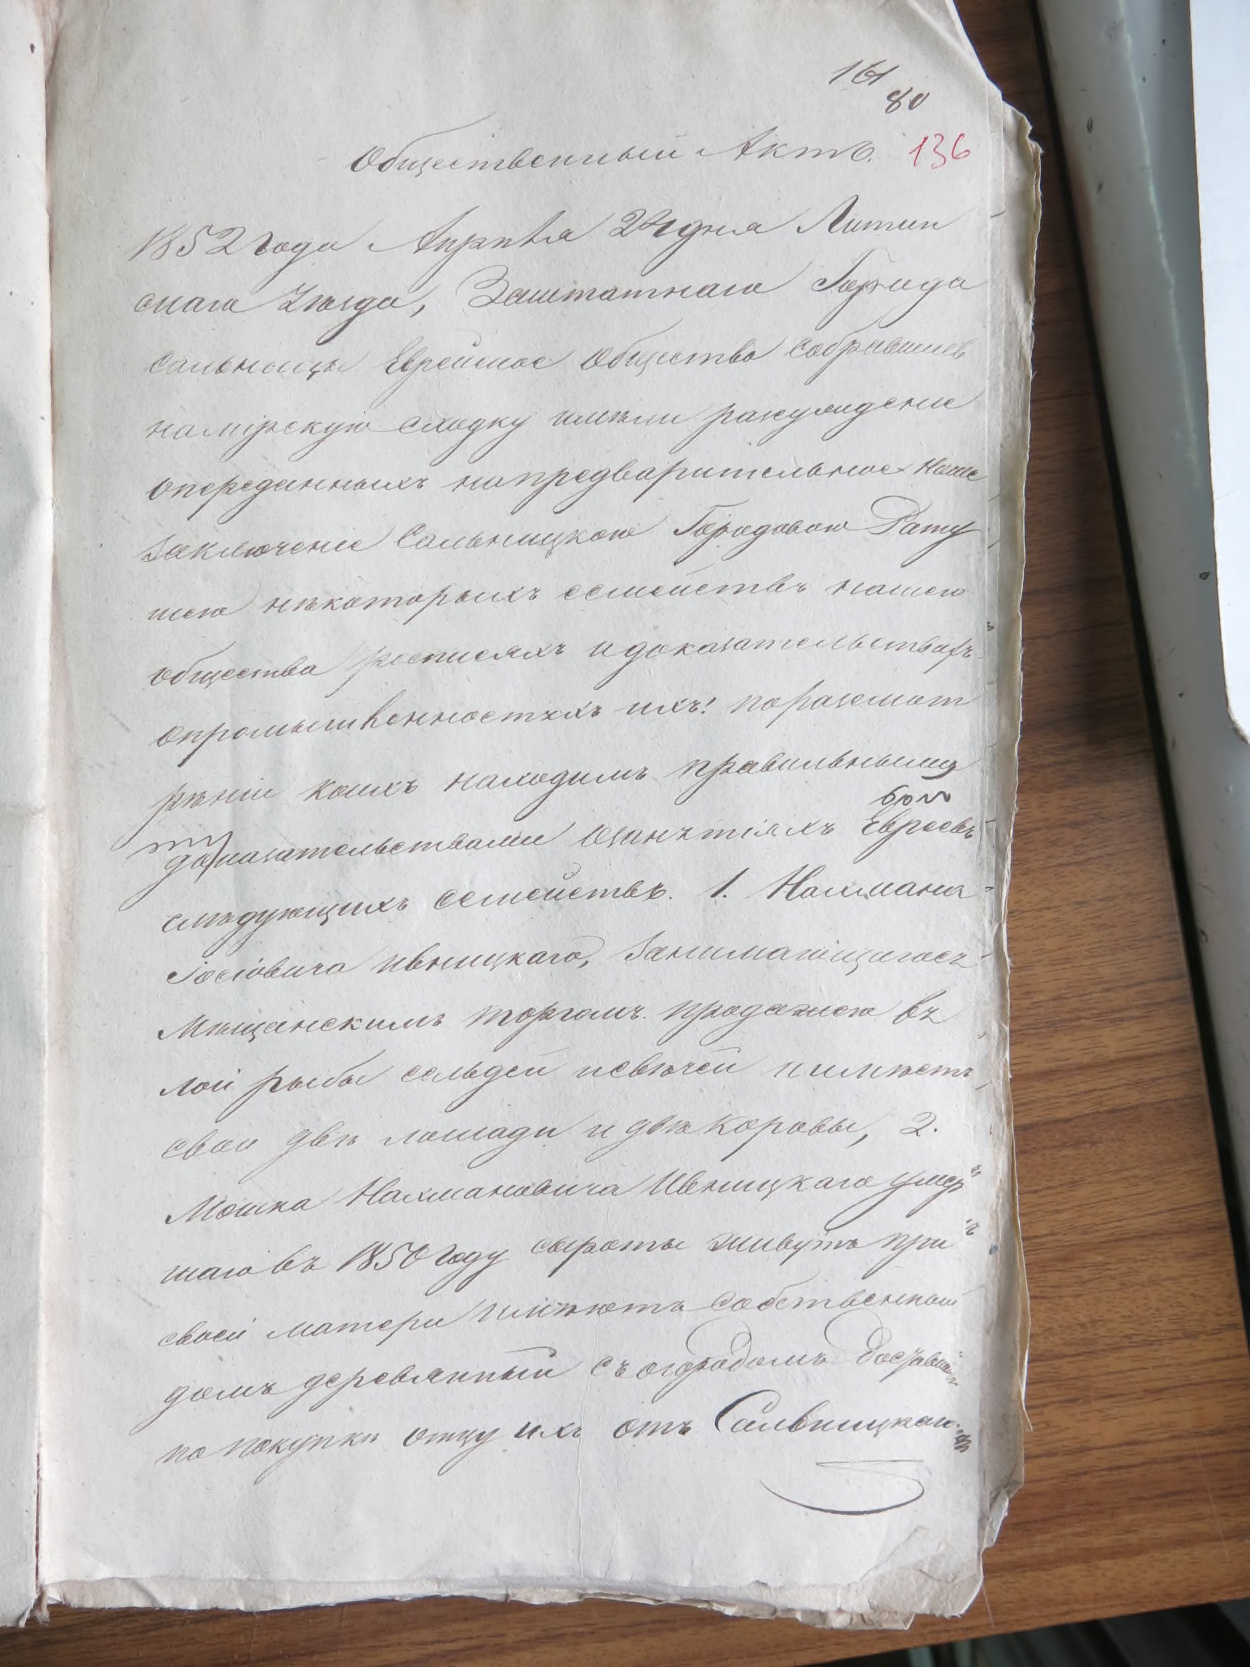 161
80
136
Общественный Актъ.
1852 года Апрѣля 24 дня Литин
скаго Уѣзда, Заштатнаго Города
Сальницы Еврейское Общество собравшись
на мірскую сходку имѣли разсуждение
о переданныхъ на предварительное наше
заключеніе Сальницкою Городовою Рату
шею нѣкоторыхъ семействъ нашего
общества росписяхъ и доказательствахъ
о промышленностяхъ ихъ! по разсмот
рѣніи коихъ находимъ правильными
доказательствами о занятіяхъ Евреевъ
слѣдующихъ семействъ. 1. Нахмана
Іосіовича Ивницкаго, занимающагось
Мѣщанскимъ торгомъ продажею вя
лой рыбы сельдей и свѣчей и имѣетъ
свои двѣ лошади и двѣ коровы, 2.
Мошка Нахмановича Ивницкаго умер
шаго въ 1850 году сыроты живутъ при
своей матери имѣютъ собственный
домъ деревянный съ огородомъ
по покупки отцу ихъ отъ Сальницкаго